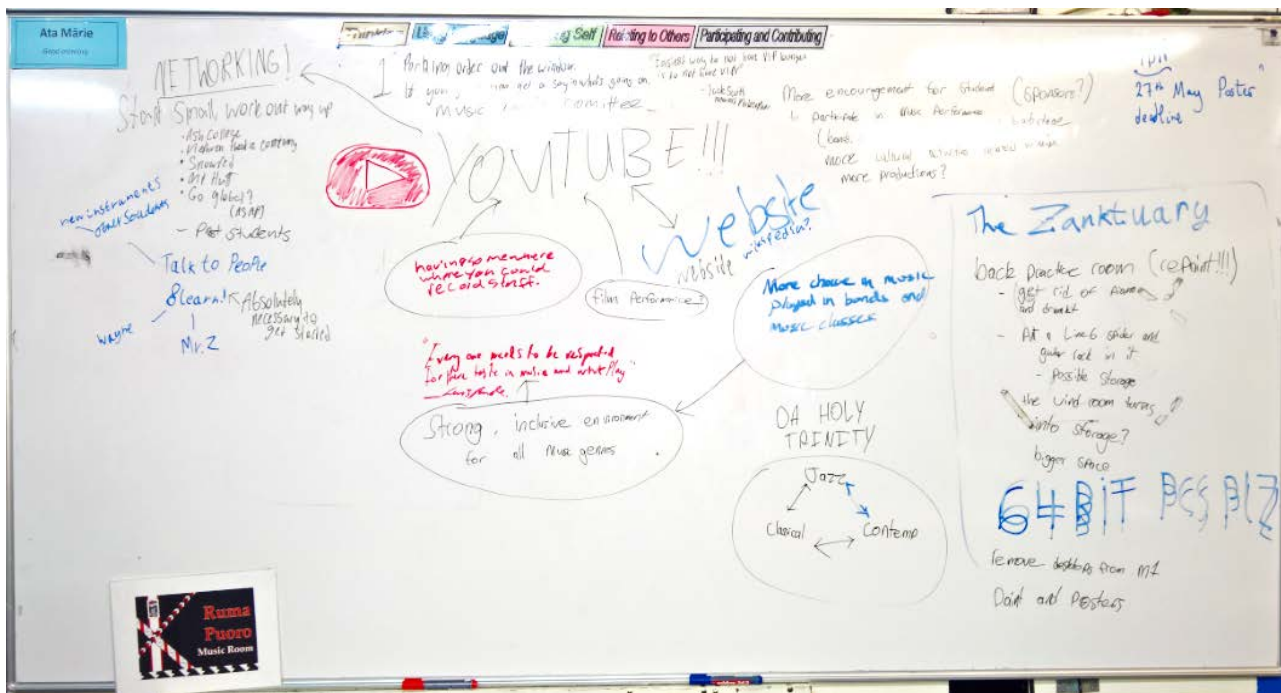 Ata Mārie
Good morning
Language
Self
Relating to Others
Participating and Contributing
NETWORKING!
Start Small, work out way up
• Ash College
• Snowfed
• Mt Hutt
• Go global?
(ASAP)
- Past students
new instruments
other students
Talk to People
& learn!
Absolutely
necessary to
get started
wayne
Mr. Z
1
order out the window.
a say in what's going on.
music comittee
"Easiest way to not have VIP hunger
is to not have VIP"
- Jack Scott
More encouragement for student (sponsors?)
to participate in music performance
(bands
more cultural
more productions?
27th May Poster
deadline
YOUTUBE!!!
having somewhere
where you could
record stuff.
film Performance?
Website
wikipedia?
webside
More choice in music
played in bands and
music classes
"Every one needs to be respected
for there taste in music and artist Play"
Strong, inclusive environment
for all music genres
DA HOLY
TRINITY
Jazz
Classical
Contemp
The Zanktuary
back practice room (rePaint!!!)
- get rid of
and
- Put a Line 6 spider and
guitar rack in it
- Possible storage
the wind room turns
into storage?
bigger space
64 BIT PCS PLZ
remove desktops from M1
Paint and Posters
Ruma
Puoro
Music Room